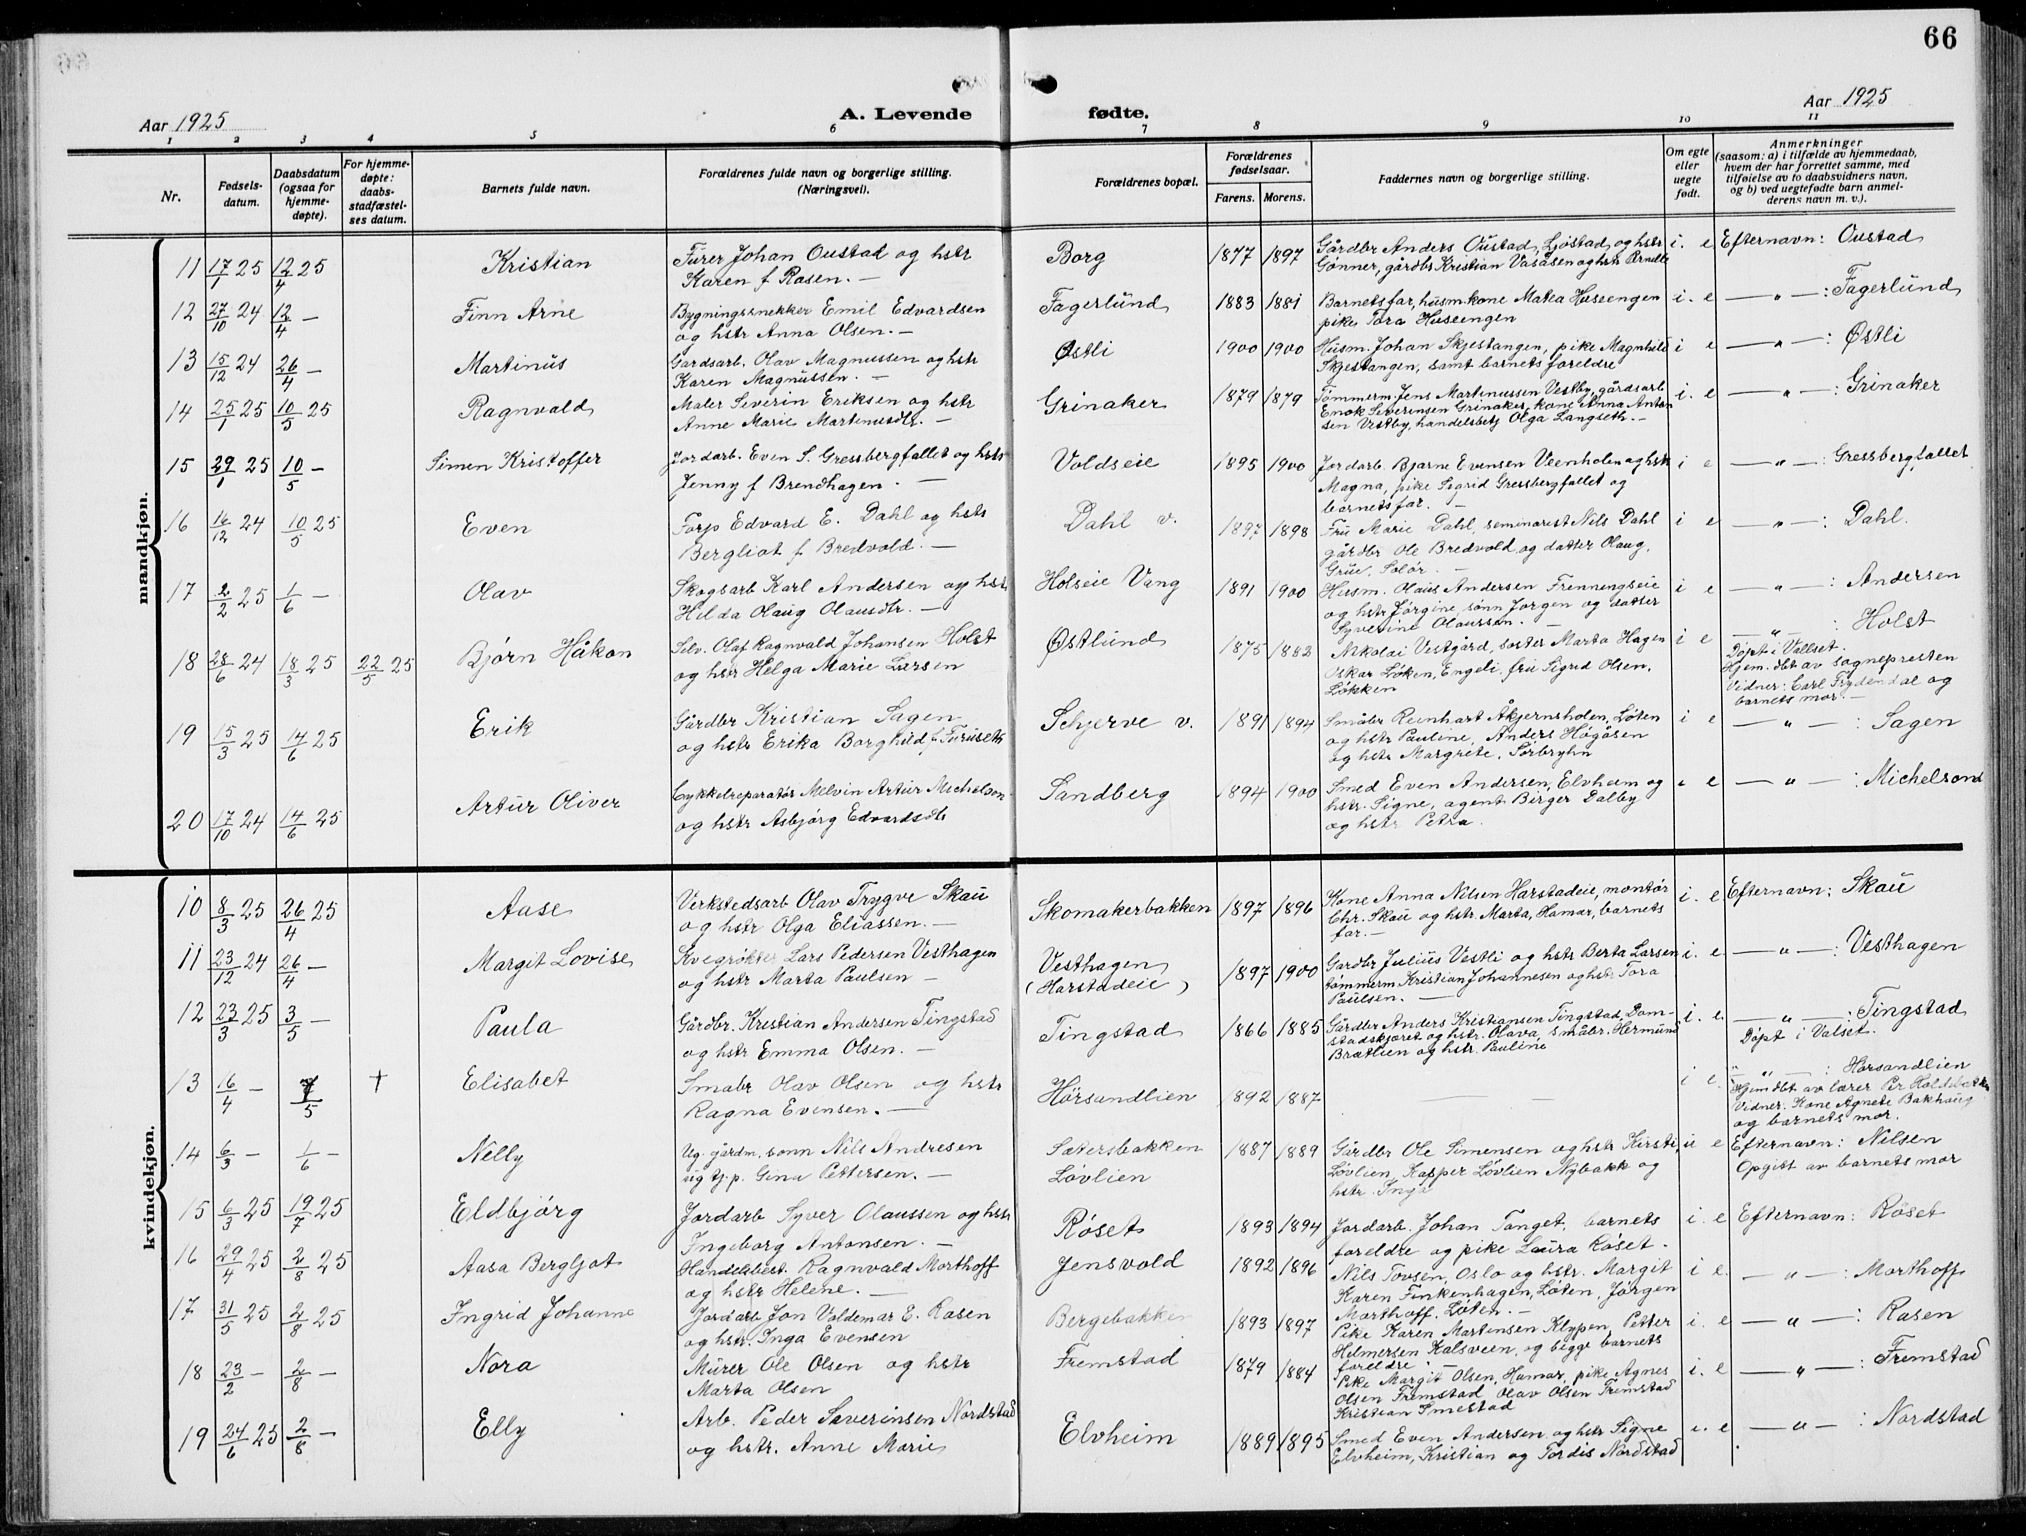 66
Aar 1925
A. Levende fødte.
Aar 1925
1 2 3 4 5 6 7 8 9 10 11
Nr.
Fødsels-
datum.
Daabsdatum
(ogsaa for
hjemme-
døpte).
For hjemme-
døpte:
daabs-
stadfæstel-
ses datum.
Barnets fulde navn.
Forældrenes fulde navn og borgerlige stilling.
(Næringsvei).
Forældrenes bopæl.
Forældrenes
fødselsaar.
Farens. Morens.
Faddernes navn og borgerlige stilling.
Om egte
eller
uegte
født.
Anmerkninger
(saasom: a) i tilfælde av hjemmedaab,
hvem der har forrettet samme, med
tilføielse av to daabsvidners navn,
og b) ved uegtefødt barn anmel-
derens navn m. v.).
mandkjøn.
11 17/1 25 12/4 25 Kristian
Furer Johan Oustad og hstr
Karen f Rosen. —
Borg 1877 1897
Gårdbr Anders Oustad, Ljøstad og hstr
Gønner, gårdbr Kristian Vasåsen og hstr Pernille
i. e Efternavn: Oustad
12 27/10 24 12/4 — Finn Arne
Bygningssnekker Emil Edvardsen
og hstr Anna Olsen. —
Fagerlund 1883 1881
Barnets far, husm.kone Matea Huseengen
pike Tora Huseengen
i. e — " — : Fagerlund
13 15/12 24 26/4 — Martinus
Gardsarb. Olav Magnussen og hstr
Karen Magnussen. —
Østli 1900 1900
Husm. Johan Skjestangen, pike Magnhild
Skjestangen, samt barnets foreldre
i e — " — : Østli
14 25/1 25 10/5 25 Ragnvald
Maler Severin Eriksen og hstr
Anne Marie Martinusdtr. —
Grinaker 1879 1879
Tømmerm. Jens Martinussen Vestby, gårdsarb
Enok Severinsen Grinaker, kone Anna Anton
sen Vestby, handelsbetj Olga Langseth. —
i. e — " — : Grinaker
15 29/1 25 10/5 — Simen Kristoffer
Jordarb. Even S. Gressbergfallet og hstr
Jenny f Brendhagen. —
Voldseie 1895 1900
Jordarb. Bjarne Evensen Veenholen og hstr
Magna, pike Sigrid Gressbergfallet og
barnets far. —
i e — " — : Gressbergfallet
16 16/12 24 10/5 25 Even
Forp Edvard E. Dahl og hstr
Bergliot f Bredvold. —
Dahl v. 1897 1898
Fru Marie Dahl, seminarist Nils Dahl
gårdbr Ole Bredvold og datter Olaug,
Grue, Solør. —
i e — " — : Dahl.
17 2/2 25 1/6 — Olav
Skogsarb Karl Andersen og hstr
Hilda Olaug Olausdtr. —
Holseie Vang 1891 1900
Husm. Olaus Andersen Frenningseie
og hstr Jørgine, sønn Jørgen og datter
Syverine Olaussen. —
i e — " — : Andersen
18 28/6 24 18/3 25 22/5 25 Bjørn Håkon
Selv. Olaf Ragnvald Johansen Holst
og hstr Helga Marie Larsen
Østlund 1875 1882
Nikolai Vestgård, søster Marta Hagen
Oskar Løken, Engeli, fru Sigrid Olsen,
Løkken
i e — " — : Holst
Døpt i Valset.
Hjem.dbt av sognepresten
Vidner: Carl Frydendal og
barnets mor. —
19 15/3 25 14/6 25 Erik
Gårdbr Kristian Sagen
og hstr Erika Borghild f. Furuseth
Schjerve v. 1891 1894
Småbr Reinhart Åkjernsholen, Løten
og hstr Pauline, Anders Høgåsen
og hstr Margrete, Sørbryhn
i e — " — : Sagen
20 17/10 24 14/6 25 Artur Oliver
Cykkelreparatør Melvin Artur Michelsen
og hstr Asbjørg Edvardsdtr
Sandberg 1894 1900
Smed Even Andersen, Elvheim og
hstr. Signe, agent Birger Dalby
og hstr Petra.
e — " — : Michelsen
kvindekjøn.
10 8/3 25 26/4 25 Aase
Verkstedsarb Olav Trygve Skau
og hstr Olga Eliassen. —
Skomakerbakken 1897 1896
Kone Anna Nilsen Harstadeie, montør
Chr. Skau og hstr Marta, Hamar, barnets
far. —
i. e Efternavn: Skau
11 23/12 24 26/4 — Margit Lovise
Kvegrøkter Lars Pedersen Vesthagen
og hstr Marta Paulsen —
Vesthagen
(Harstadeie) 1897 1900
Gardbr Julius Vestli og hstr Berta Larsen
tømmerm Kristian Johannesen og hstr Tora
Paulsen. —
i. e. — " — : Vesthagen
12 23/3 25 3/5 — Paula
Gårdbr. Kristian Andersen Tingstad
og hstr Emma Olsen. —
Tingstad 1866 1885
Gårdbr Anders Kristiansen Tingstad, Dom-
stadskjøret og hstr. Olava, småbr. Hermund
Brætlien og hstr. Pauline
i. e. — " — : Tingstad
Døpt i Valset.
13 16/4 — 7/5 † Elisabet
Småbr Olav Olsen og hstr
Ragna Evensen. —
Hørsandlien 1892 1887
— —
i e. " — : Hørsandlien
Hjemdbt av lærer Per Holdsbakken
Vidner: Kone Agnete Bakhaug
og barnets mor.
14 6/3 — 1/6 — Nelly
Ug. gårdm. sønn Nils Andresen
ug tj.p. Gina Pettersen. —
Sætersbakken
Løvlien 1887 1889
Gårdbr Ole Simensen og hstr Kirsti,
Løvlien, Kasper Løvlien Nybakk og
hstr. Inga
u e Efternavn: Nilsen
Opgitt av barnets mor
15 6/3 25 19/7 25 Eldbjørg
Jordarb Syver Olaussen og hstr
Ingeborg Antonsen. —
Røset 1893 1894
Jordarb. Johan Tanget, barnets
foreldre og pike Laura Røset.
i. e Efternavn: Røset
16 29/4 25 2/8 25 Aasa Bergljot
Handelsbest. Ragnvald Morthoff
og hstr Helene. —
Jensvold 1892 1896
Nils Tovsen, Oslo og hstr. Margit
Karen Finkenhagen, Løten, Jørgen
Morthoff, Løten. —
i e. — " — : Morthoff
17 31/5 25 2/8 25 Ingrid Johanne
Jordarb Jon Valdemar E. Rosen
og hstr. Inga Evensen
Bergebakken 1893 1897
Pike Karen Martinsen Klypen, Petter
Helmersen Kalsveen, og begge barnets
foreldre. —
i. e — " — : Rosen
18 23/2 — 2/8 — Nora
Murer Ole Olsen og hstr
Marta Olsen
Fremstad 1879 1884
Pike Margit Olsen, Hamar, pike Agnes
Olsen Fremstad Olav Olsen Fremstad
Kristian Smestad
i. e — " — : Fremstad
19 24/6 25 2/8 — Elly
Arb. Peder Severinsen Nordstad
og hstr. Anne Marie
Elvheim 1889 1895
Smed Even Andersen og hstr Signe
Elvheim, Kristian og Tordis Nordstad
e. e — " — : Nordstad